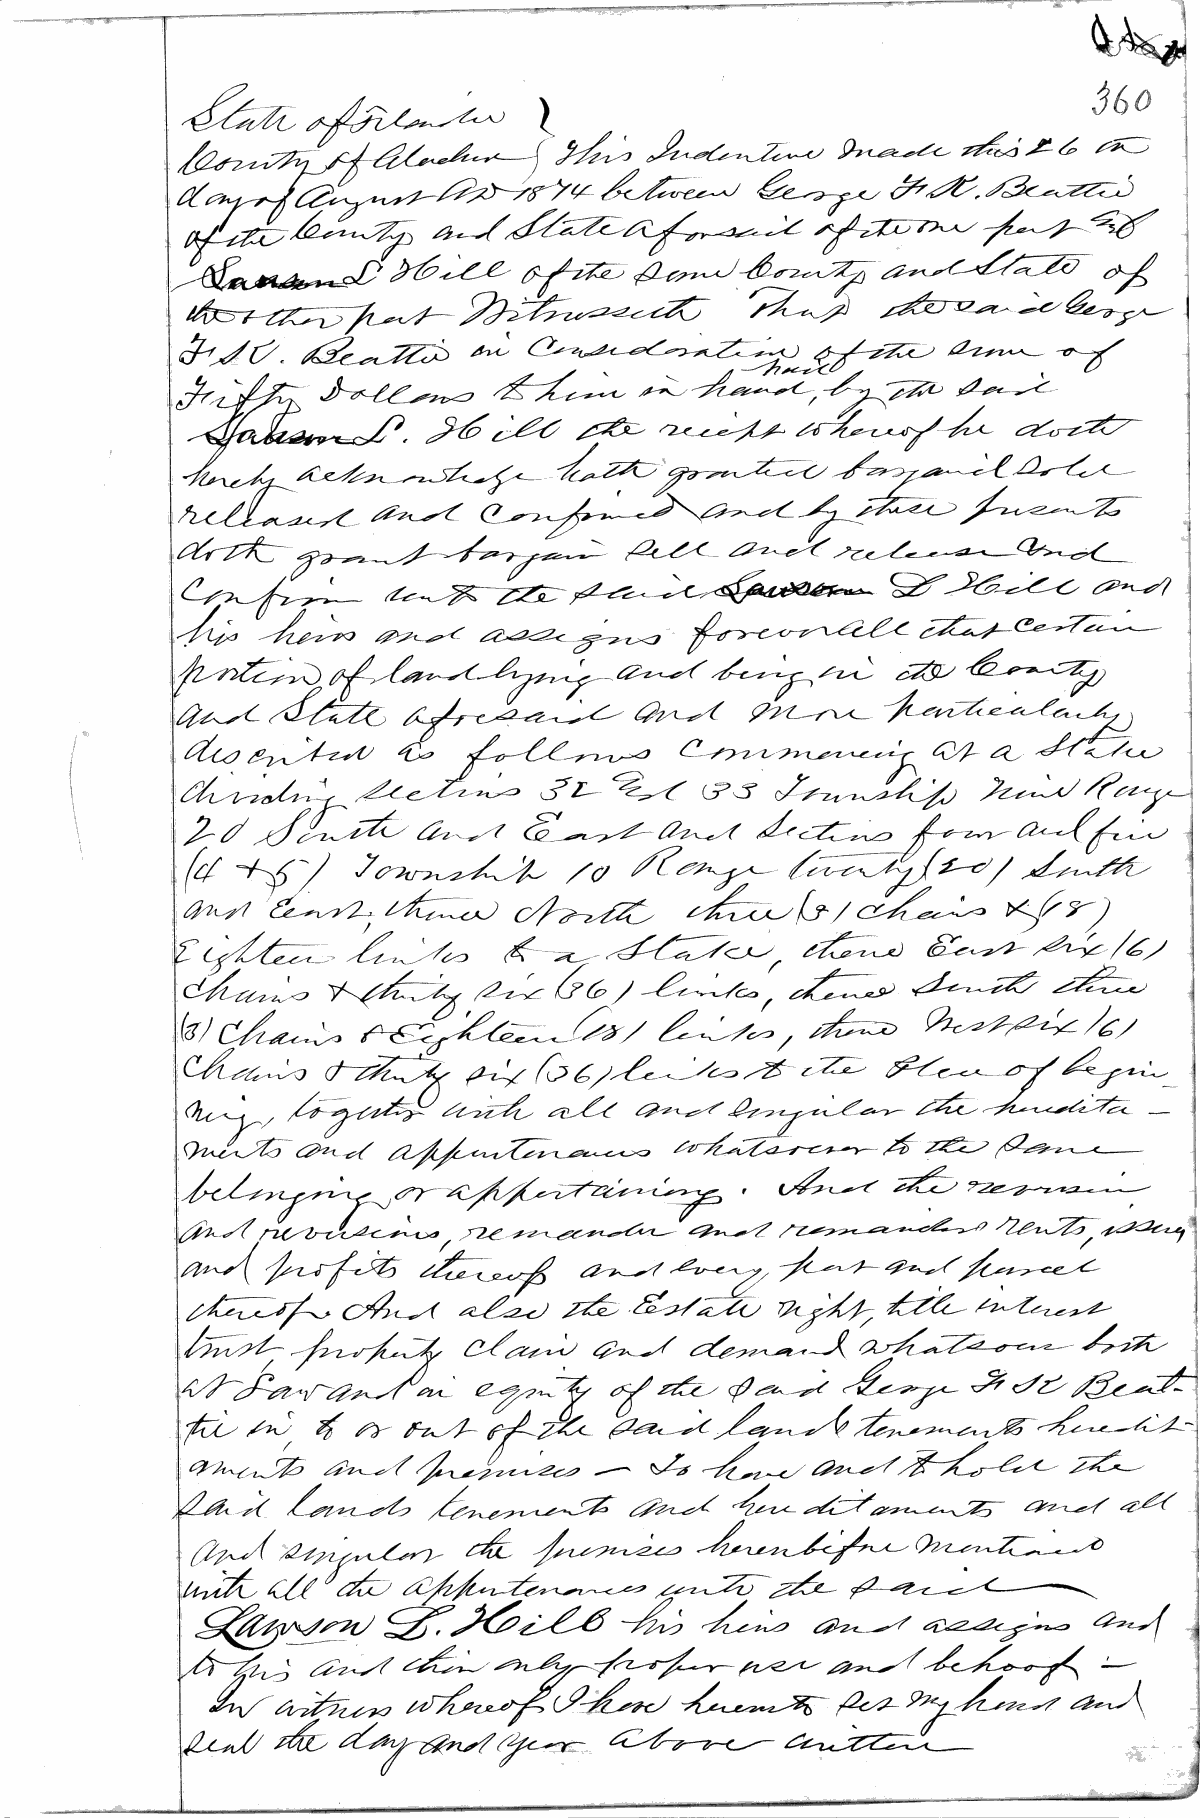 360
State of Florida )
County of Alachua } This Indenture made this 26 th
day of August AD 1874 between George F. K. Beattie
of the County and State aforesaid of the one part and
L Hill of the same County and State of
the other part Witnesseth That the said George
F. K. Beattie in Consideration of the sum of
Fifty Dollars to him in hand paid, by the said
L. Hill the reciept whereof he doth
hereby acknowledge hath granted bargained sold
released and confirmed and by these presents
doth grant bargain sell and release and
Confirm unto the said Lawson L Hill and
his heirs and assigns forever all that certain
portion of land lying and being in the County
and State aforesaid and more particularly
described as follows Commencing at a Stake
dividing sections 32 and 33 Township Nine Range
20 South and East and Sections four and five
(4 + 5) Township 10 Range twenty (20) South
and East, thence North three (3) chains & (18)
Eighteen links to a Stake, thence East six (6)
Chains & thirty six (36) links, thence South three
(3) Chains & Eighteen (18) links, thence West six (6)
Chains & thirty six (36) links to the place of begin-
ning, together with all and singular the heredita-
ments and appurtenances whatsoever to the same
belonging or appertaining. And the reversion
and reversions, remander and remanders rents, issues
and profits thereof and every part and parcel
thereof. And also the Estate right, title interest
trust, property claim and demand whatsoever both
at Law and in equity of the said George F K Beat-
tie in, to or out of the said lands tenements heredit-
aments and premises — To have and to hold the
said lands tenements and hereditaments and all
and singular the premises hereinbefore mentioned
with all the appurtenances unto the said
Lawson L. Hill his heirs and assigns and
to his and their only proper use and behoof —
In witness whereof I have hereunto set my hand and
seal the day and year above written